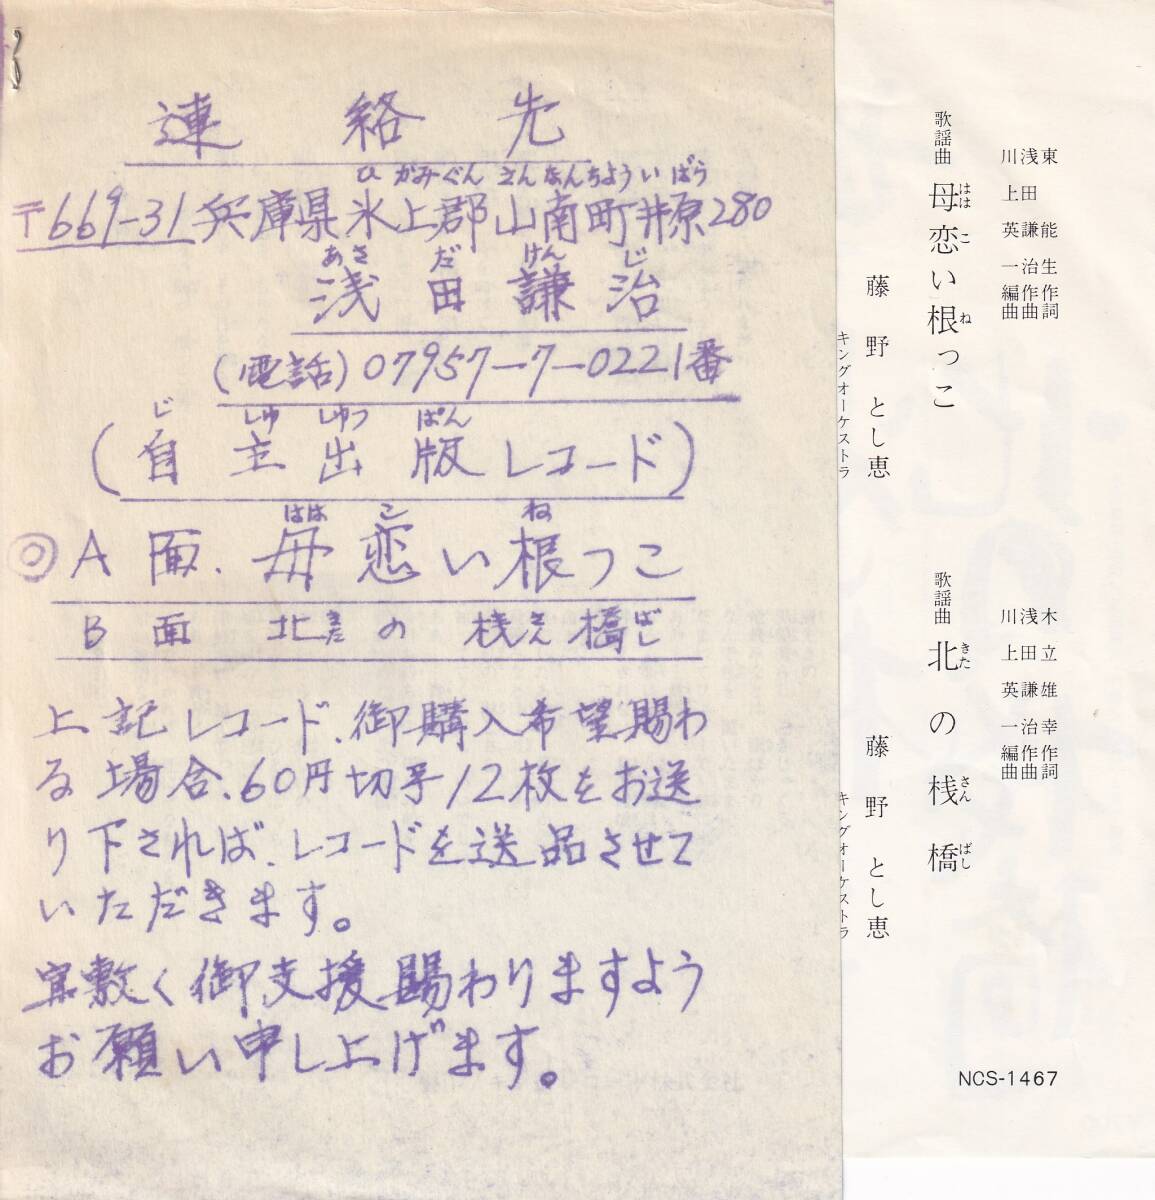 連絡先
ひかみぐんさんなんちよういばら
〒669-31兵庫県氷上郡山南町井原280
あさだけんじ
浅田謙治
(電話)07957-7-0221番
じしゅしゅつぱん
(自主出版レコード)
ははこね
◎A面.母恋い根っこ
B面北きたの桟さん橋ばし
上記レコード、御購入希望賜わ
る場合、60円切手12枚をお送
り下されば、レコードを送品させて
いただきます。
宜敷く御支援賜わりますよう
お願い申し上げます。
東 能生 作詞
浅田謙治 作曲
川上英一 編曲
歌謡曲 母恋い根っこ
はは こ ね
藤野とし恵
キングオーケストラ
木立雄幸 作詞
浅田謙治 作曲
川上英一 編曲
歌謡曲 北の桟橋
きた さん ばし
藤野とし恵
キングオーケストラ
NCS-1467